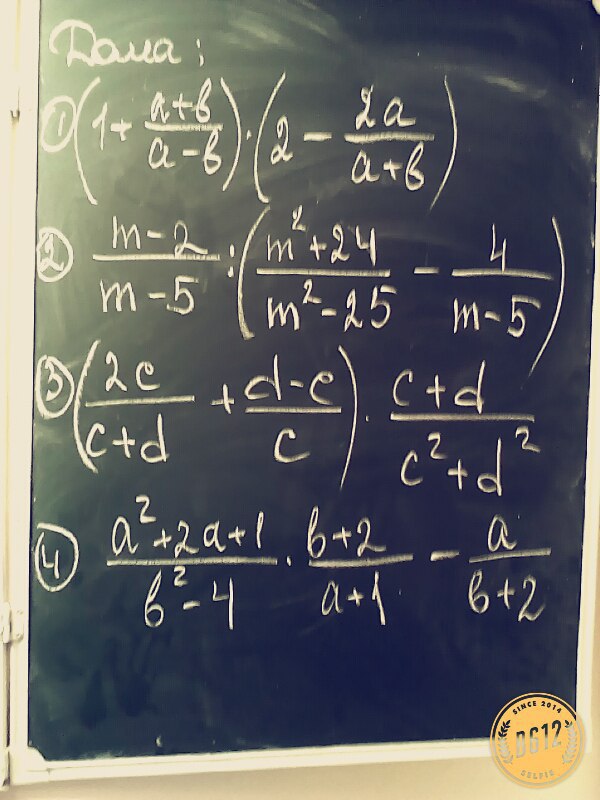 Дома:
① (1 + (a+b)/(a-b)) · (2 - 2a/(a+b))
② (m-2)/(m-5) : ((m²+24)/(m²-25) - 4/(m-5))
③ (2c/(c+d) + (d-c)/c) · (c+d)/(c²+d²)
④ (a²+2a+1)/(b²-4) · (b+2)/(a+1) - a/(b+2)
SINCE 2014
B612
SELFIE